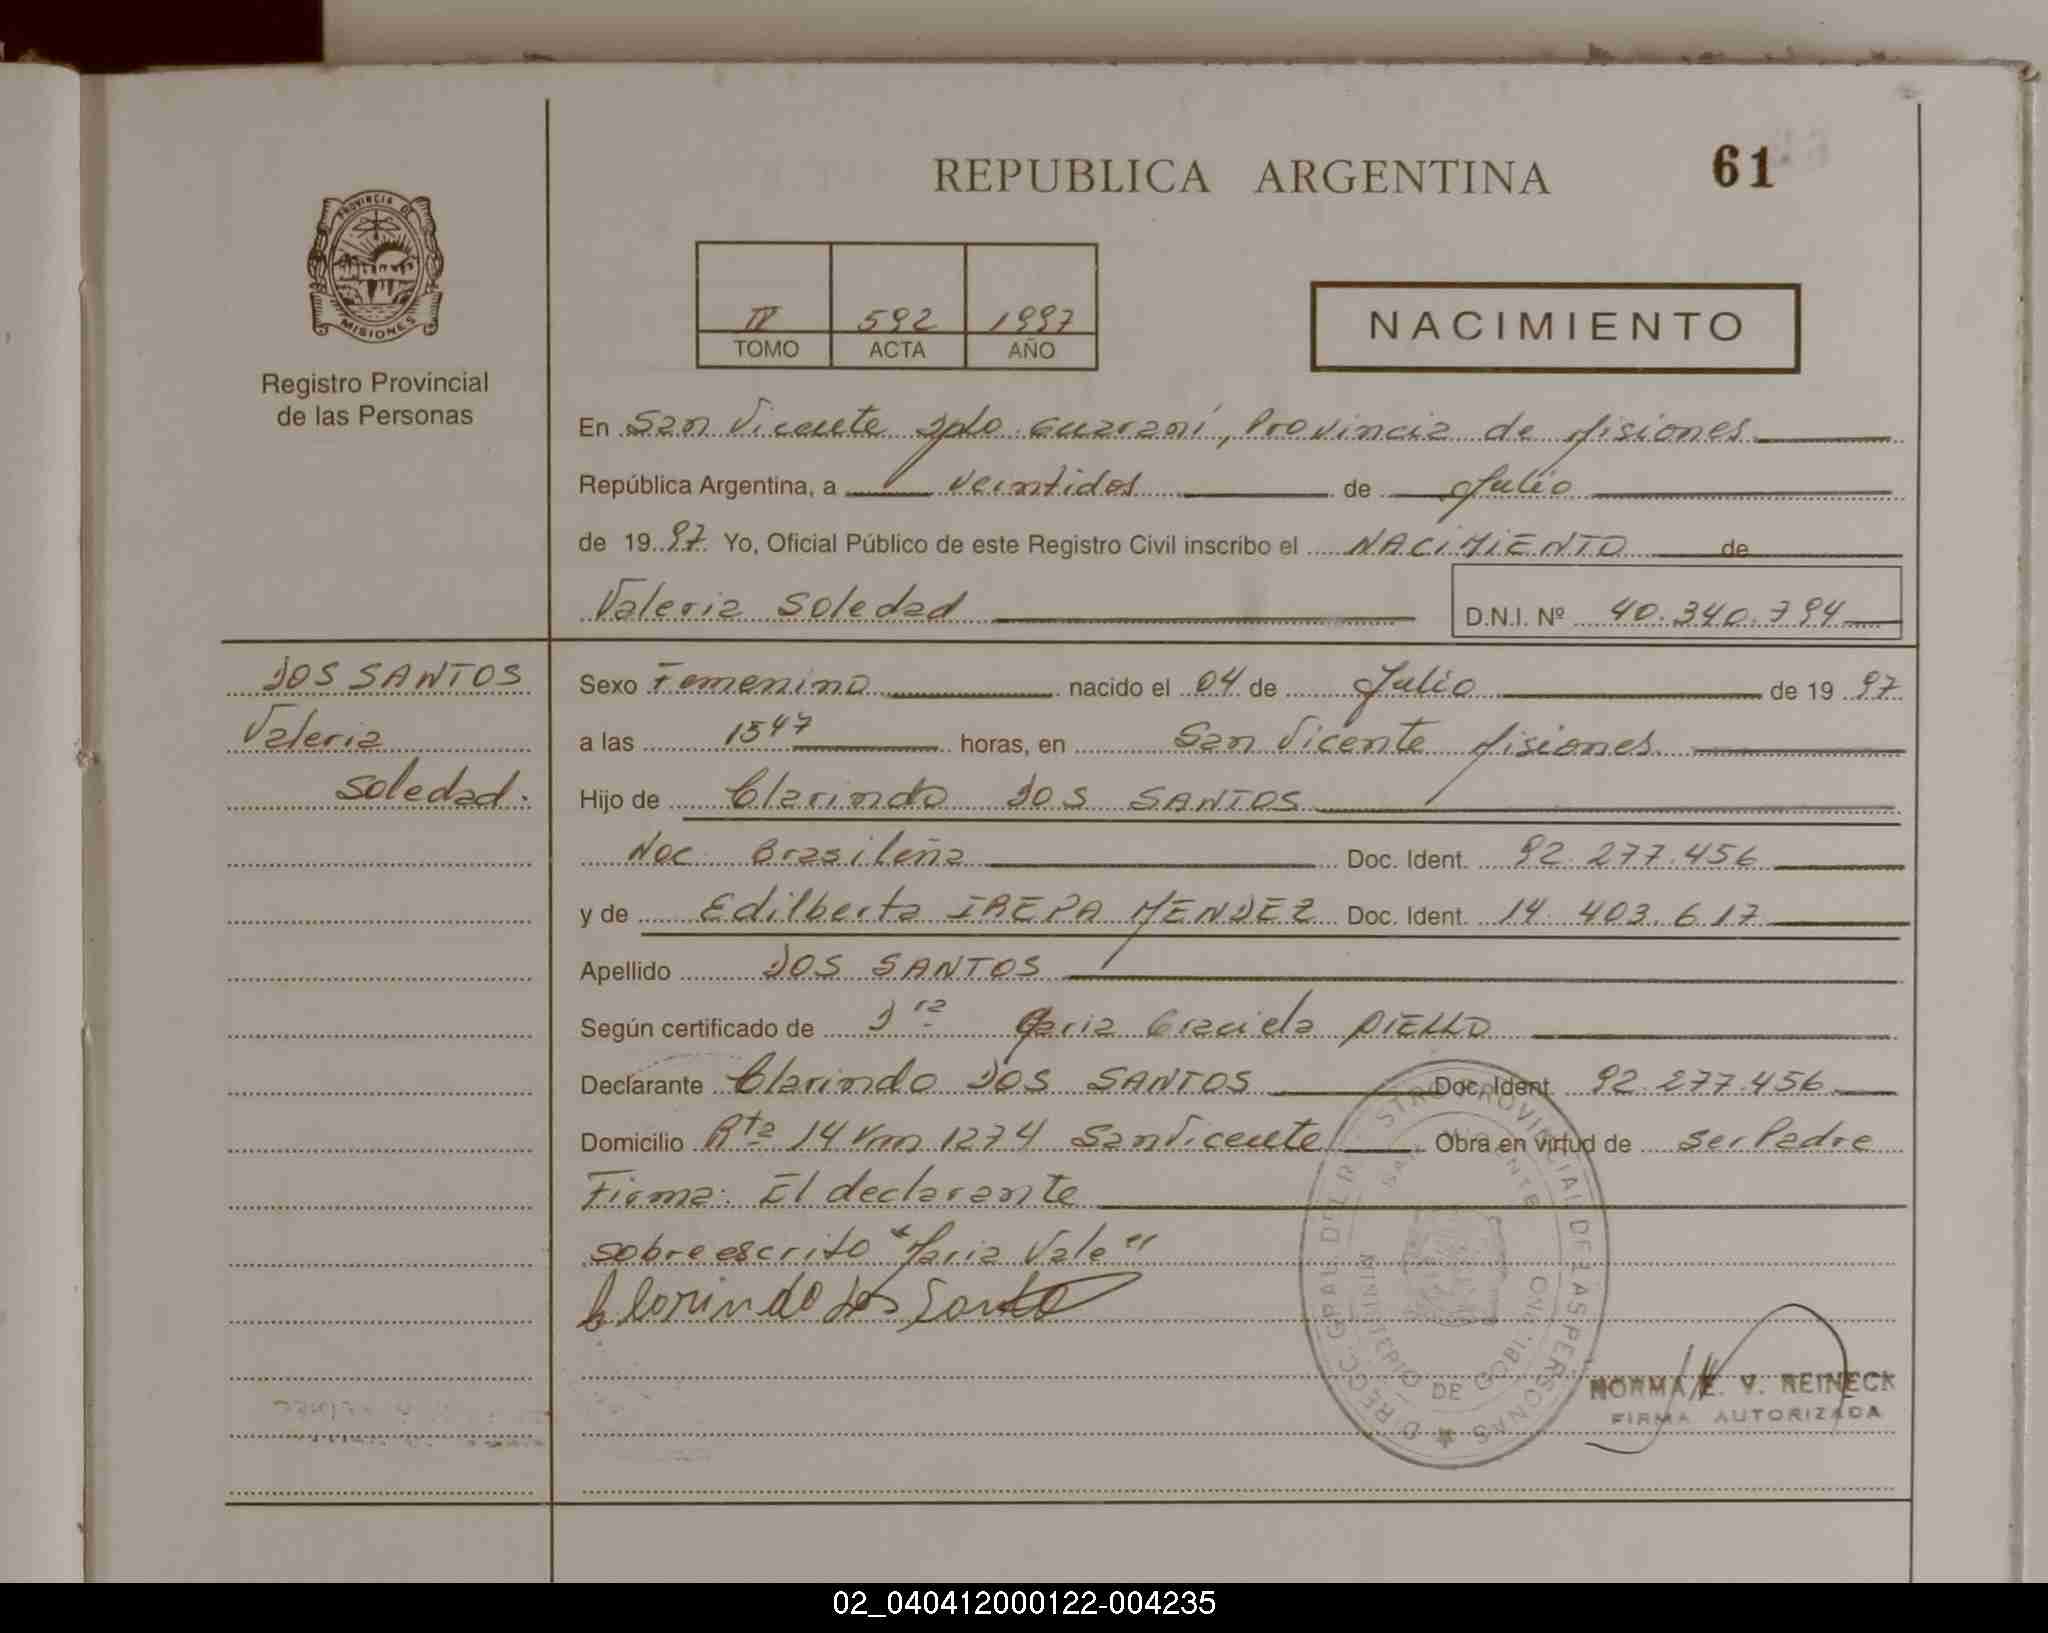 REPUBLICA ARGENTINA
61
PROVINCIA DE
MISIONES
Registro Provincial
de las Personas
IV 592 1997
TOMO ACTA AÑO
NACIMIENTO
En San Vicente Dpto Guaraní, Provincia de Misiones
República Argentina, a veintidos de Julio
de 1997 Yo, Oficial Público de este Registro Civil inscribo el NACIMIENTO de
Valeria Soledad D.N.I. Nº 40.340.794
DOS SANTOS
Valeria
Soledad.
Sexo Femenino nacido el 04 de Julio de 19 97
a las 1547 horas, en San Vicente Misiones
Hijo de Clarindo DOS SANTOS
Nac Brasileña Doc. Ident. 92.277.456
y de Edilberta IREPA MENDEZ Doc. Ident. 14.403.617
Apellido DOS SANTOS
Según certificado de Dra Maria Graciela
Declarante Clarindo DOS SANTOS Doc. Ident. 92.277.456
Domicilio Rta 14 Km 1274 San Vicente Obra en virtud de ser Padre
Firma: El declarante
sobreescrito "Maria Vale"
Clorindo dos Santo
DIRECC. GRAL DEL REGISTRO PROVINCIAL DE LAS PERSONAS
SAN VICENTE
MINISTERIO DE GOBIERNO
NORMA E. V. REINECK
FIRMA AUTORIZADA
02_040412000122-004235